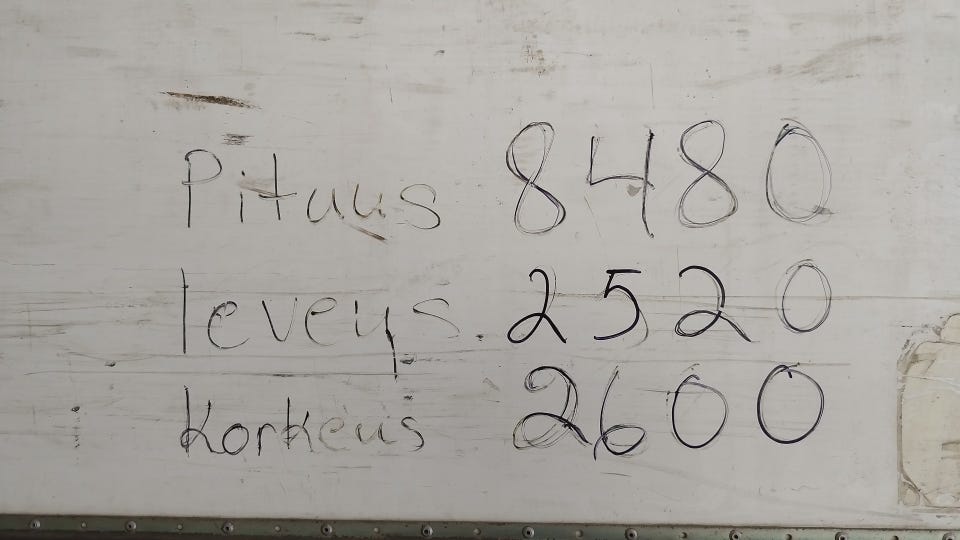 Pituus 8480
leveys 2520
Korkeus 2600